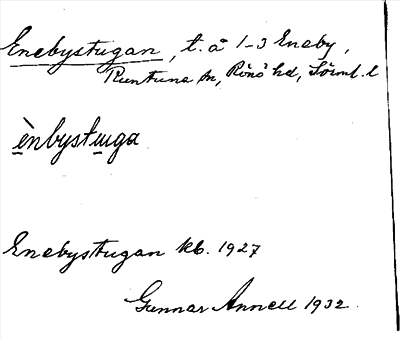 Enebystugan, t. å 1-3 Eneby,
Runtuna sn, Rönö hd, Sörml. l
ènbystuga
Enebystugan kb. 1927
Gunnar Annell 1932